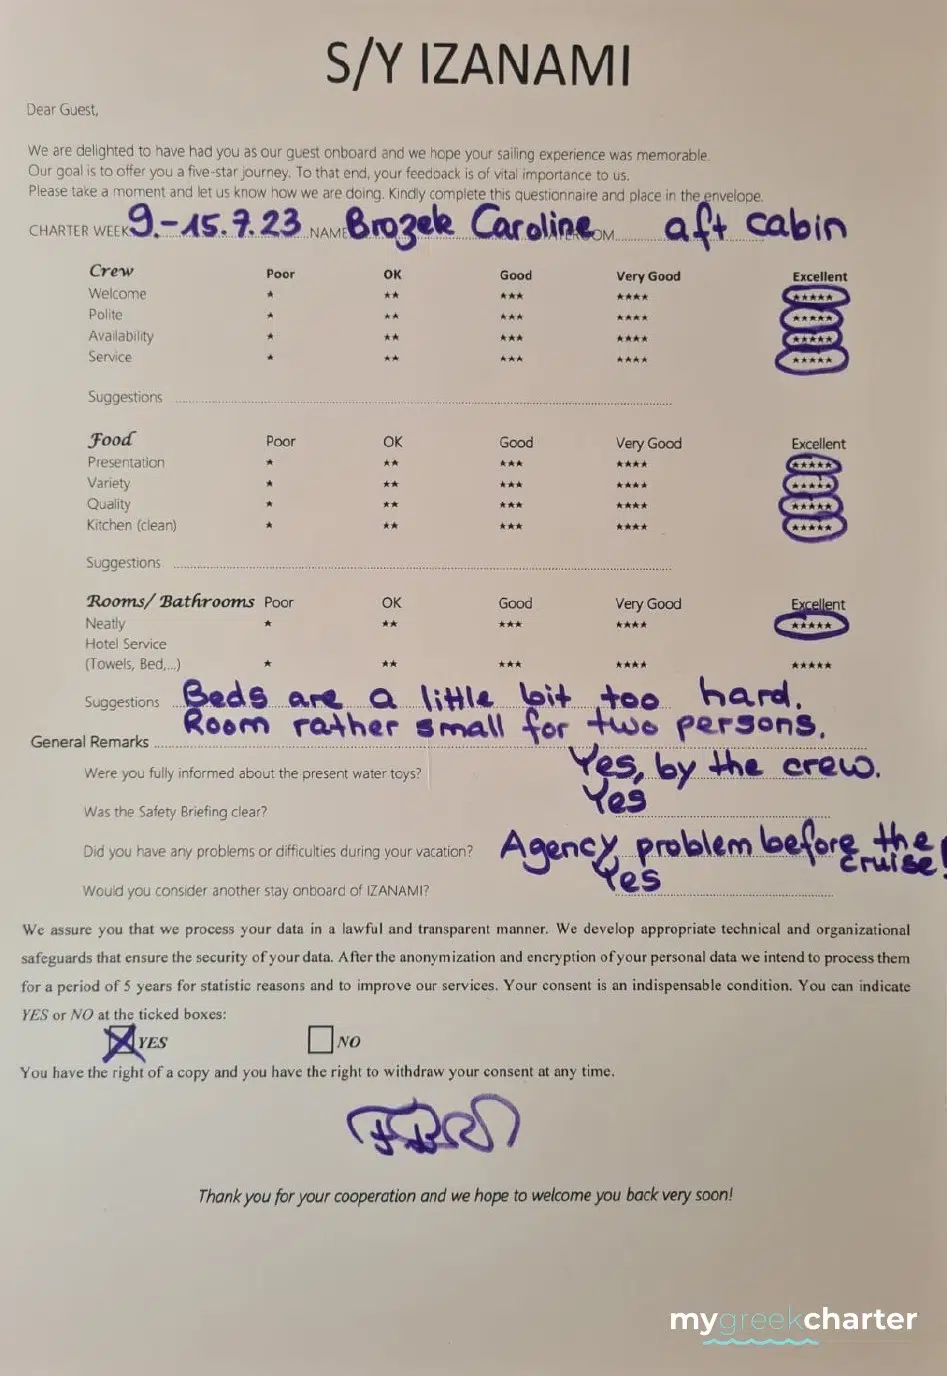 S/Y IZANAMI
Dear Guest,
We are delighted to have had you as our guest onboard and we hope your sailing experience was memorable.
Our goal is to offer you a five-star journey. To that end, your feedback is of vital importance to us.
Please take a moment and let us know how we are doing. Kindly complete this questionnaire and place in the envelope.
CHARTER WEEK 9.-15.7.23 NAME Brozek Caroline OM aft cabin
Crew Poor OK Good Very Good Excellent
Welcome ★ ★★ ★★★ ★★★★ ★★★★★
Polite ★ ★★ ★★★ ★★★★ ★★★★★
Availability ★ ★★ ★★★ ★★★★ ★★★★★
Service ★ ★★ ★★★ ★★★★ ★★★★★
Suggestions
Food Poor OK Good Very Good Excellent
Presentation ★ ★★ ★★★ ★★★★ ★★★★★
Variety ★ ★★ ★★★ ★★★★ ★★★★★
Quality ★ ★★ ★★★ ★★★★ ★★★★★
Kitchen (clean) ★ ★★ ★★★ ★★★★ ★★★★★
Suggestions
Rooms/ Bathrooms Poor OK Good Very Good Excellent
Neatly ★ ★★ ★★★ ★★★★ ★★★★★
Hotel Service
(Towels, Bed,...) ★ ★★ ★★★ ★★★★ ★★★★★
Suggestions Beds are a little bit too hard.
Room rather small for two persons.
General Remarks
Were you fully informed about the present water toys? Yes, by the crew.
Was the Safety Briefing clear? Yes
Did you have any problems or difficulties during your vacation? Agency problem before the cruise!
Would you consider another stay onboard of IZANAMI? Yes
We assure you that we process your data in a lawful and transparent manner. We develop appropriate technical and organizational
safeguards that ensure the security of your data. After the anonymization and encryption of your personal data we intend to process them
for a period of 5 years for statistic reasons and to improve our services. Your consent is an indispensable condition. You can indicate
YES or NO at the ticked boxes:
YES NO
You have the right of a copy and you have the right to withdraw your consent at any time.
Thank you for your cooperation and we hope to welcome you back very soon!
mygreekcharter